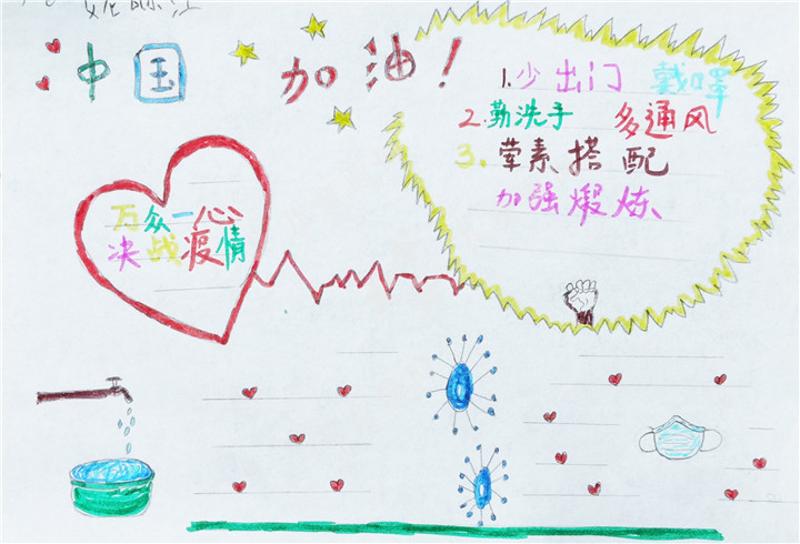 中国 加油！
1.少出门 戴口罩
2.勤洗手 多通风
3.荤素搭配
加强煅炼
万众一心
决战疫情